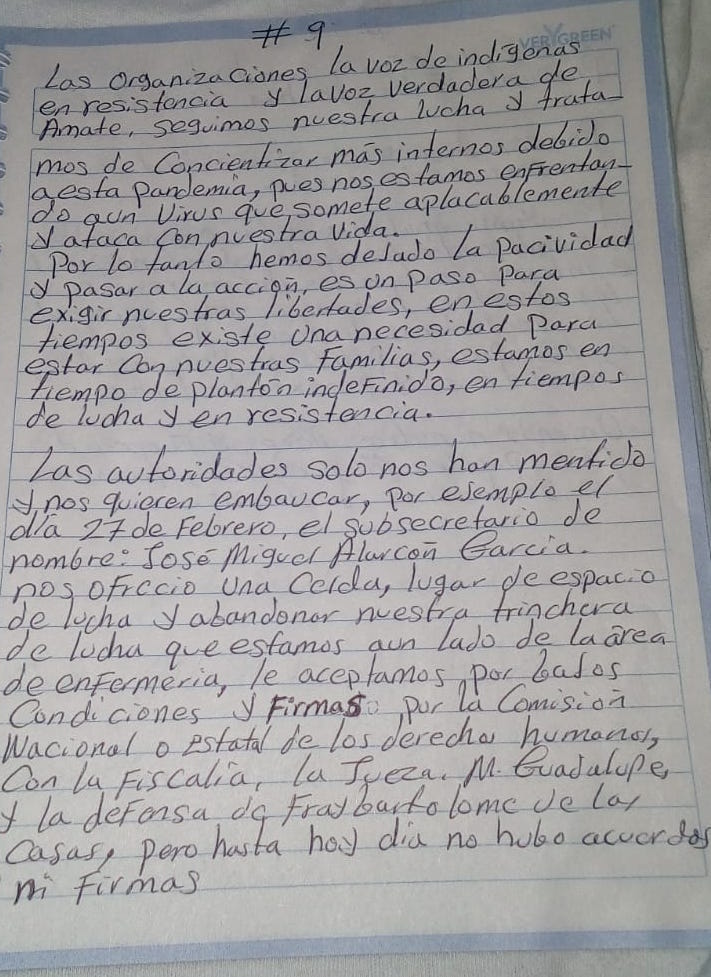 # 9
VERYGREEN
Las Organizaciones, la voz de indigenas
en resistencia y la voz verdadera de
Amate, seguimos nuestra lucha y trata-
mos de Concientizar más internos debido
a esta pandemia, pues nos estamos enfrentan-
do aun Virus que somete aplacablemente
y ataca con nuestra vida.
Por lo tanto hemos dejado la pacividad
y pasar a la acción, es un paso para
exigir nuestras libertades, en estos
tiempos existe una necesidad para
estar con nuestras Familias, estamos en
tiempo de plantón indefinido, en tiempos
de lucha y en resistencia.
Las autoridades solo nos han mentido
y nos quieren embaucar, por ejemplo el
día 27 de Febrero, el subsecretario de
nombre: José Miguel Alarcón García.
nos ofreccio una Celda, lugar de espacio
de lucha y abandonar nuestra trinchera
de lucha que estamos aun lado de la área
de enfermeria, le aceptamos por bajos
Condiciones y Firmas por la Comisión
Nacional o Estatal de los derechos humanos,
Con la Fiscalía, la Jueza. M. Guadalupe,
y la defensa de Fray bartolome de las
Casas, pero hasta hoy día no hubo acuerdos
ni Firmas